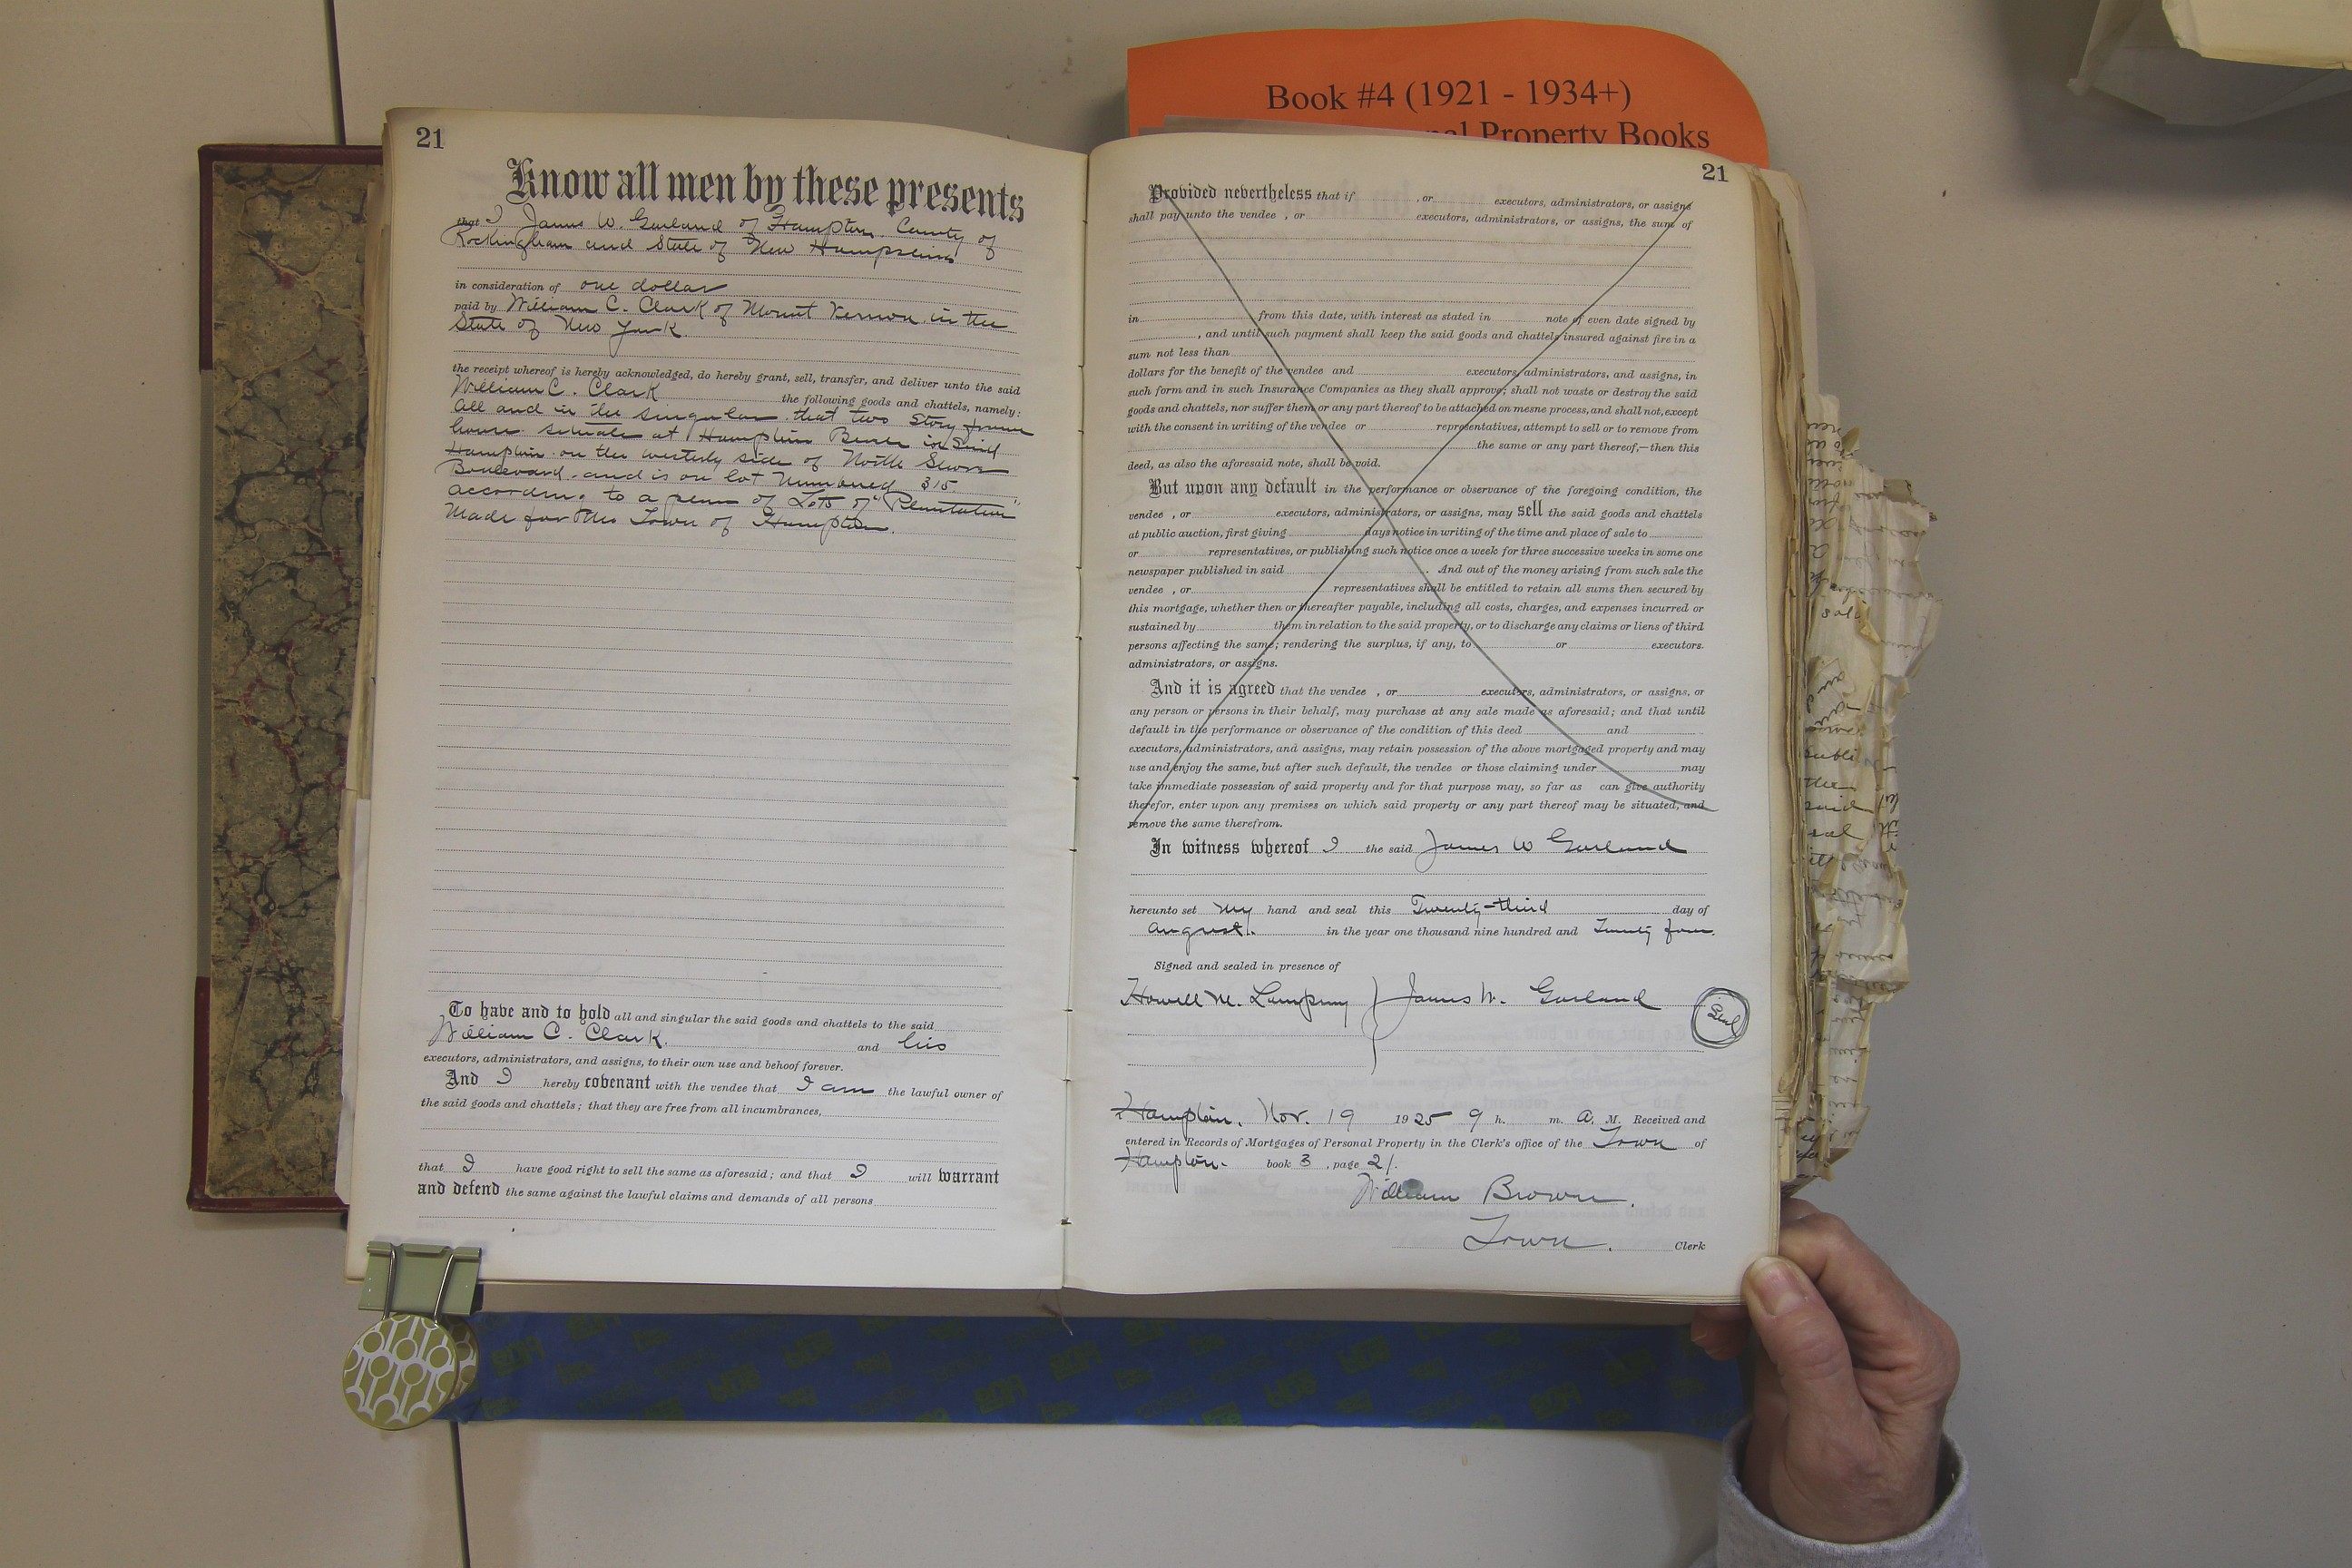 Book #4 (1921 - 1934+)
Property Books
21
Know all men by these presents
that I James W. Garland of Hampton County of
Rockingham and State of New Hampshire
in consideration of one dollar
paid by William C. Clark of Mount Vernon in the
State of New York
the receipt whereof is hereby acknowledged, do hereby grant, sell, transfer, and deliver unto the said
William C. Clark the following goods and chattels, namely:
all and in the singular that two Story frame
house situate at Hampton Beach in Said
Hampton on the westerly side of North Shore
Boulevard and is on lot Numbered 315
according to a plan of Lots of "Plantation"
Made for the Town of Hampton.
To have and to hold all and singular the said goods and chattels to the said
William C. Clark. and his
executors, administrators, and assigns, to their own use and behoof forever.
And I hereby covenant with the vendee that I am the lawful owner of
the said goods and chattels; that they are free from all incumbrances,
that I have good right to sell the same as aforesaid; and that I will warrant
and defend the same against the lawful claims and demands of all persons
21
Provided nevertheless that if , or executors, administrators, or assigns
shall pay unto the vendee , or executors, administrators, or assigns, the sum of
in from this date, with interest as stated in note of even date signed by
, and until such payment shall keep the said goods and chattels insured against fire in a
sum not less than
dollars for the benefit of the vendee and executors, administrators, and assigns, in
such form and in such Insurance Companies as they shall approve; shall not waste or destroy the said
goods and chattels, nor suffer them or any part thereof to be attached on mesne process, and shall not, except
with the consent in writing of the vendee or representatives, attempt to sell or to remove from
the same or any part thereof,—then this
deed, as also the aforesaid note, shall be void.
But upon any default in the performance or observance of the foregoing condition, the
vendee , or executors, administrators, or assigns, may sell the said goods and chattels
at public auction, first giving days notice in writing of the time and place of sale to
or representatives, or publishing such notice once a week for three successive weeks in some one
newspaper published in said . And out of the money arising from such sale the
vendee , or representatives shall be entitled to retain all sums then secured by
this mortgage, whether then or thereafter payable, including all costs, charges, and expenses incurred or
sustained by them in relation to the said property, or to discharge any claims or liens of third
persons affecting the same; rendering the surplus, if any, to or executors.
administrators, or assigns.
And it is agreed that the vendee , or executors, administrators, or assigns, or
any person or persons in their behalf, may purchase at any sale made as aforesaid; and that until
default in the performance or observance of the condition of this deed and
executors, administrators, and assigns, may retain possession of the above mortgaged property and may
use and enjoy the same, but after such default, the vendee or those claiming under may
take immediate possession of said property and for that purpose may, so far as can give authority
therefor, enter upon any premises on which said property or any part thereof may be situated, and
remove the same therefrom.
In witness whereof I the said James W Garland
hereunto set my hand and seal this Twenty-third day of
August. in the year one thousand nine hundred and Twenty four.
Signed and sealed in presence of
Howell M. Lamprey } James W. Garland Seal
Hampton, Nov. 19 1925 9 h. m. A. M. Received and
entered in Records of Mortgages of Personal Property in the Clerk's office of the Town of
Hampton. book 3 , page 21.
William Brown.
Town. Clerk